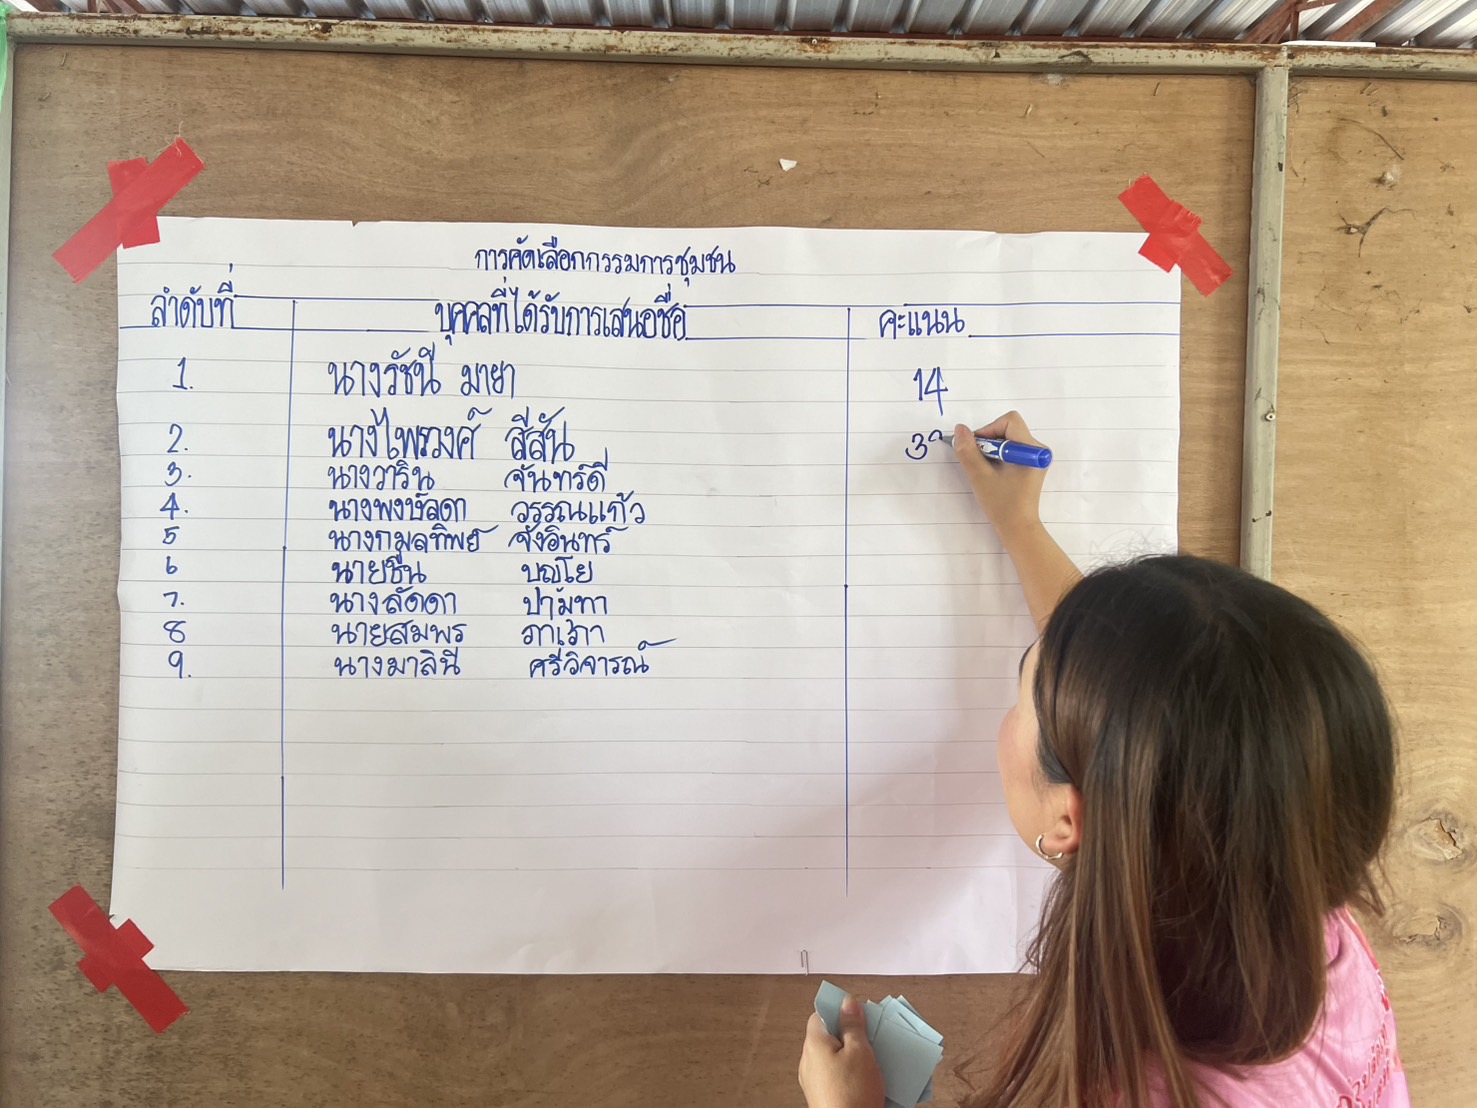 การคัดเลือกกรรมการชุมชน
ลำดับที่ บุคคลที่ได้รับการเสนอชื่อ คะแนน
1. นางรัชนี มายา 14
2. นางไพรวงศ์ สีสัน
3. นางวาริน จันทร์ดี
4. นางพงษ์ลดา วรรณแก้ว
5 นางกมลทิพย์ จังอินทร์
6 นายชื่น บุญโย
7. นางลัดดา ปามัทา
8 นายสมพร
9. นางมาลินี ศรีวิจารณ์